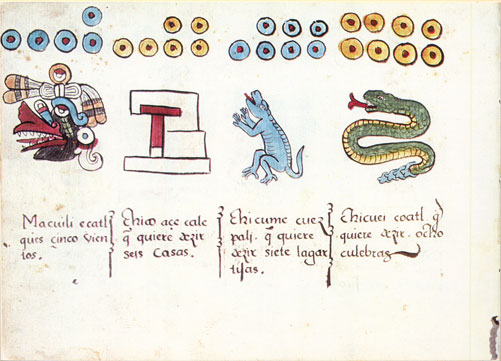 Macuili ecatl
ques cinco vien
tos.
Chico açe cale
q̃ quiere dezir
seis casas.
Chicume cuez
pali. q̃ quiere
dezir siete lagar
tijas.
Chicuei coatl q̃
quiere dezir. ocho
culebras